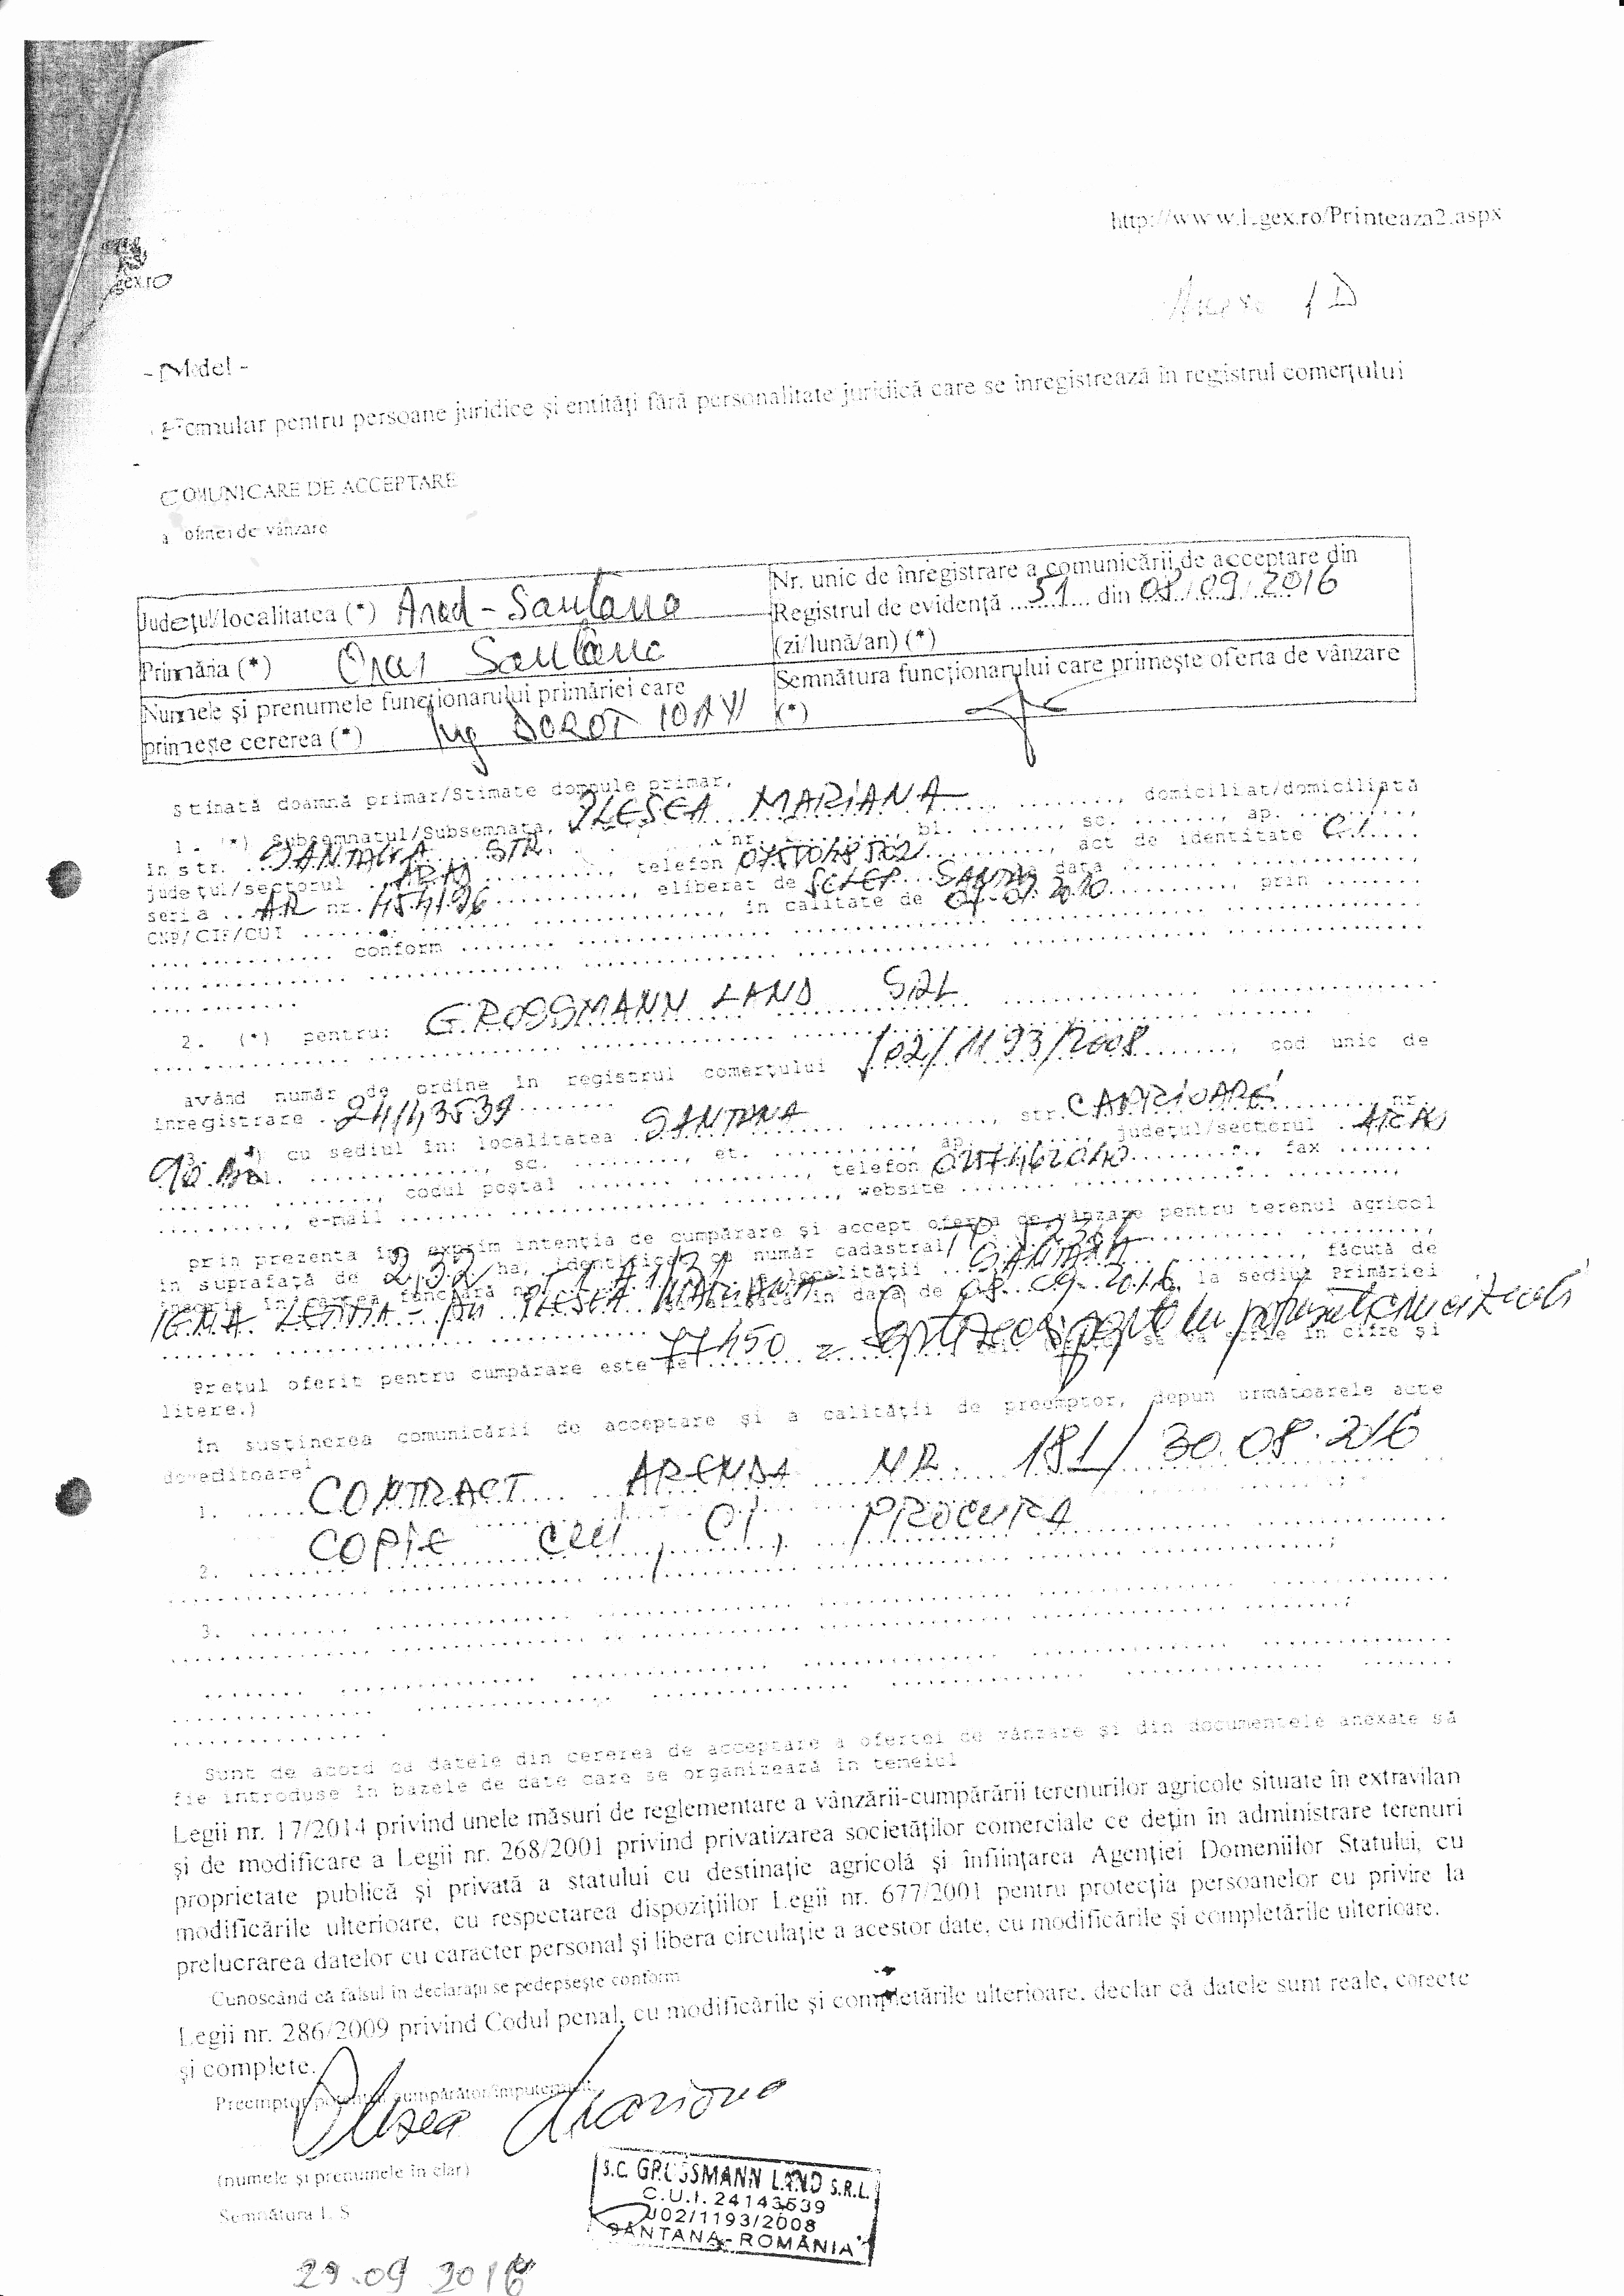 http://www.legex.ro/Printeaza2.aspx
gex.ro
Anexa 1D
- Model -
Formular pentru persoane juridice și entități fără personalitate juridică care se înregistrează în registrul comerțului
COMUNICARE DE ACCEPTARE
a ofertei de vânzare
Județul/localitatea (*) Arad - Santana
Nr. unic de înregistrare a comunicării de acceptare din
Registrul de evidență ...51... din 08/09/2016
(zi/lună/an) (*)
Primăria (*) Oraș Santana
Numele și prenumele funcționarului primăriei care
primește cererea (*) Ing DOROT IOAN
Semnătura funcționarului care primește oferta de vânzare
(*)
Stimată doamnă primar/Stimate domnule primar,
1. (*) Subsemnatul/Subsemnata, PLESEA MARIANA ........, domiciliat/domiciliată
în str. SANTANA STR. nr. ........, bl. ......., sc. ......., ap. .........,
județul/sectorul ARAD ..........., telefon ..........., act de identitate C.I.
seria AR nr. 454196 ............, eliberat de SCLEP SANTANA data ........
CNP/CIF/CUI ........ , în calitate de ..........., prin ........
............. conform ........
2. (*) pentru: GROSSMANN LAND SRL
având număr de ordine în registrul comerțului J02/1193/2008, cod unic de
înregistrare 24143539
3. (*) cu sediul în: localitatea SANTANA, str. CAPRIOAREI, nr.
90, bl. ..........., sc. ........., et. ..........., ap. ........, județul/sectorul ARAD
........, codul poștal ........, telefon 0257462040, fax ........
..........., e-mail ........, website ........,
prin prezenta îmi exprim intenția de cumpărare și accept oferta de vânzare pentru terenul agricol
în suprafață de 2,32 ha, identificat cu număr cadastral
înscris în cartea funciară nr. a localității SANTANA, făcută de
PLESEA MARIANA în data de 08.09.2016 la sediul Primăriei
Prețul oferit pentru cumpărare este de 77450 = în cifre și
litere.)
În susținerea comunicării de acceptare și a calității de preemptor, depun următoarele acte
doveditoare:
1. CONTRACT ARENDA NR. 181/30.08.2016
2. COPIE CUI, CI, PROCURA
3. ........
Sunt de acord ca datele din cererea de acceptare a ofertei de vânzare și din documentele anexate să
fie introduse în bazele de date care se organizează în temeiul
Legii nr. 17/2014 privind unele măsuri de reglementare a vânzării-cumpărării terenurilor agricole situate în extravilan
și de modificare a Legii nr. 268/2001 privind privatizarea societăților comerciale ce dețin în administrare terenuri
proprietate publică și privată a statului cu destinație agricolă și înființarea Agenției Domeniilor Statului, cu
modificările ulterioare, cu respectarea dispozițiilor Legii nr. 677/2001 pentru protecția persoanelor cu privire la
prelucrarea datelor cu caracter personal și libera circulație a acestor date, cu modificările și completările ulterioare.
Cunoscând că falsul în declarații se pedepsește conform
Legii nr. 286/2009 privind Codul penal, cu modificările și completările ulterioare, declar că datele sunt reale, corecte
și complete.
Preemptor/potențial cumpărător/împuternicit,
Plesea Mariana
(numele și prenumele în clar)
Semnătura L.S.
S.C. GROSSMANN LAND S.R.L.
C.U.I. 24143539
J02/1193/2008
SÂNTANA - ROMÂNIA
29.09.2016